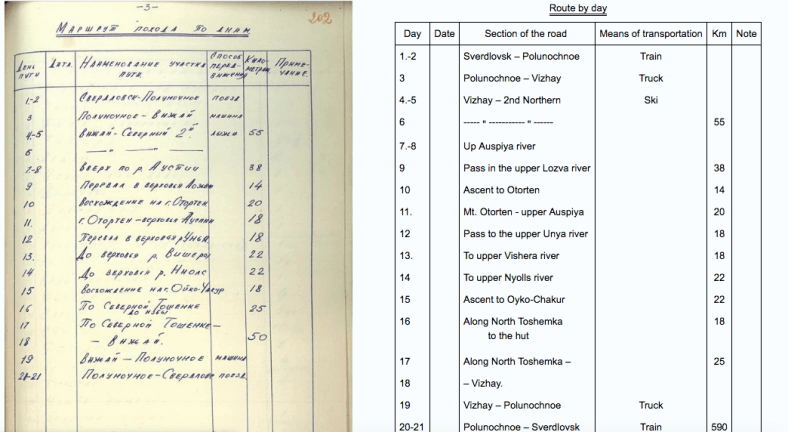 – 3 –
202
Маршрут похода по дням
День пути Дата Наименование участка пути Способ передвижения Километраж Примечание
1-2 Свердловск-Полуночное поезд
3 Полуночное – Вижай машина
4-5 Вижай-Северный 2й лыжи 55
6 — " — " —
7-8 Вверх по р. Ауспии 38
9 Перевал в верховья Лозьвы 14
10 Восхождение на г. Отортен 20
11. г. Отортен-верховья Ауспии 18
12 Перевал в верховья р. Унья 18
13. До верховья р. Вишеры 22
14 До верховья р. Ниолс 22
15 Восхождение на г. Ойко-Чакур 18
16 По Северной Тошемке до избы 25
17 По Северной Тошемке –
18 – Вижай. 50
19 Вижай – Полуночное машина
20-21 Полуночное-Свердловск поезд.
Route by day
Day Date Section of the road Means of transportation Km Note
1.-2 Sverdlovsk – Polunochnoe Train
3 Polunochnoe – Vizhay Truck
4.-5 Vizhay – 2nd Northern Ski
6 ----- " ----------- " ------ 55
7.-8 Up Auspiya river
9 Pass in the upper Lozva river 38
10 Ascent to Otorten 14
11. Mt. Otorten - upper Auspiya 20
12 Pass to the upper Unya river 18
13. To upper Vishera river 18
14 To upper Nyolls river 22
15 Ascent to Oyko-Chakur 22
16 Along North Toshemka 18
to the hut
17 Along North Toshemka – 25
18 – Vizhay.
19 Vizhay – Polunochnoe Truck
20-21 Polunochnoe – Sverdlovsk Train 590